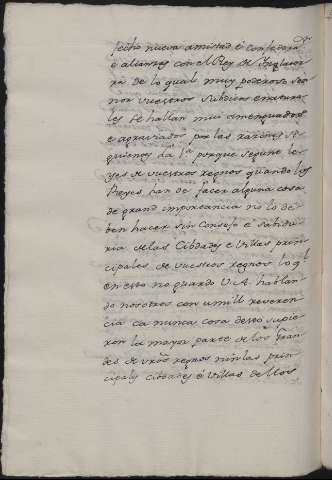 fecho nueva amistad é confedera
é alianzas con el Rey de Ynglater
ra de lo qual muy poderoso Se
nor vuestros Subditos é natura
les se hallan mui amenguados
e agraviados por las razones Si
guientes La 1ª porque segun le
yes de vuestros regnos quando los
Reyes han de facer alguna cosa
de grand importancia no lo de
ben hacer sin Consejo é Sabidu
ria de las Cibdades e Villas prin
cipales de vuestros regnos lo ql
en esto no guardó V.A. hablan
do nosotros con umill reveren
cia ca nunca cosa desto supie
ron la mayor parte de los Gran
des de vrõs regnos nin las prin
cipales Cibdades é Villas dellos